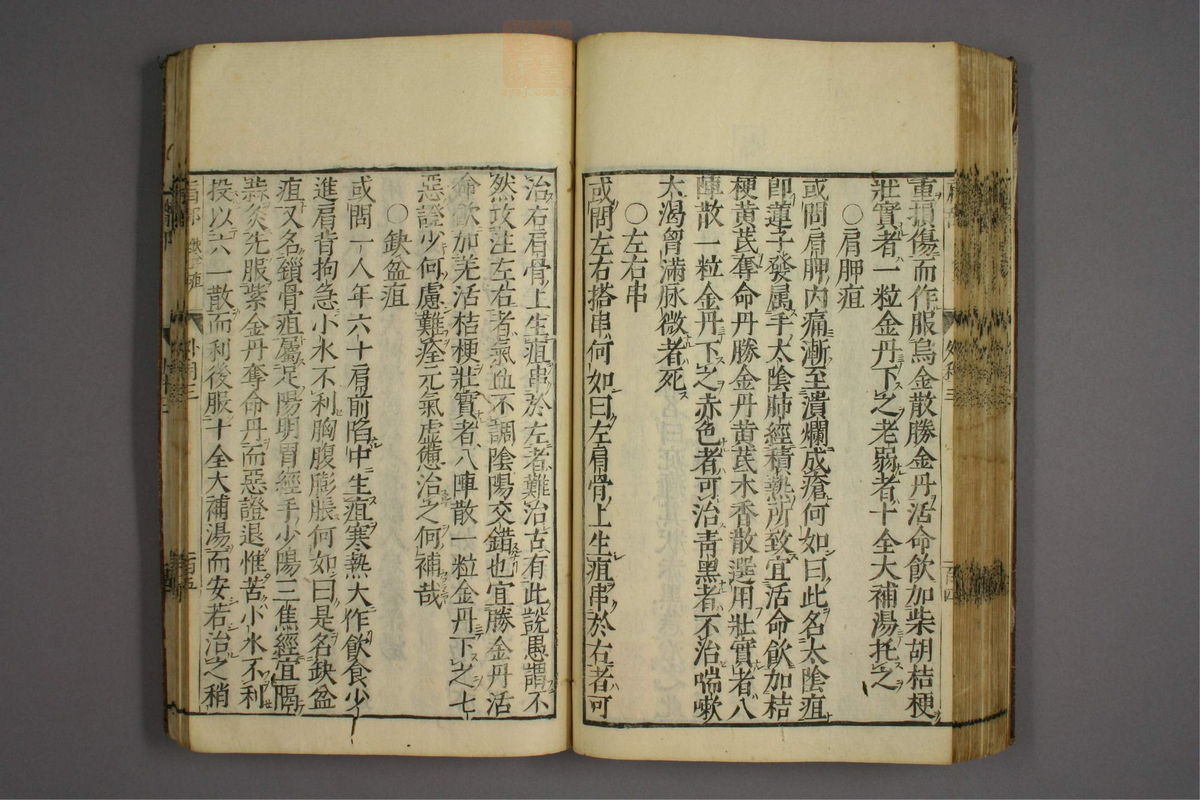 重損傷而作服烏金散勝金丹活命飲加柴胡桔梗
壯實者一粒金丹下之老弱者十全大補湯托之
○肩胛疽
或問肩胛内痛漸至潰爛成瘡何如曰此名太陰疽
即蓮子發属手太陰肺經積熱所致宜活命飲加桔
梗黄芪奪命丹勝金丹黄芪木香散選用壯實者八
陣散一粒金丹下之赤色者可治青黑者不治喘嗽
大渴胷滿脉微者死
○左右串
或問左右搭串何如曰左肩骨上生疽串於右者可
治右肩骨上生疽串於左者難治古有此說愚謂不
然攻注左右者氣血不調陰陽交錯也宜勝金丹活
命飲加羌活桔梗壯實者八陣散一粒金丹下之七
惡證少何慮難痊元氣虛憊治之何補哉
○缺盆疽
或問一人年六十肩前陷中生疽寒熱大作飲食少
進肩背拘急小水不利胸腹膨脹何如曰是名缺盆
疽又名鎖骨疽屬足陽明胃經手少陽三焦經宜隔
蒜灸先服紫金丹奪命丹而惡證退惟苦小水不利
投以六一散而利後服十全大補湯而安若治之稍